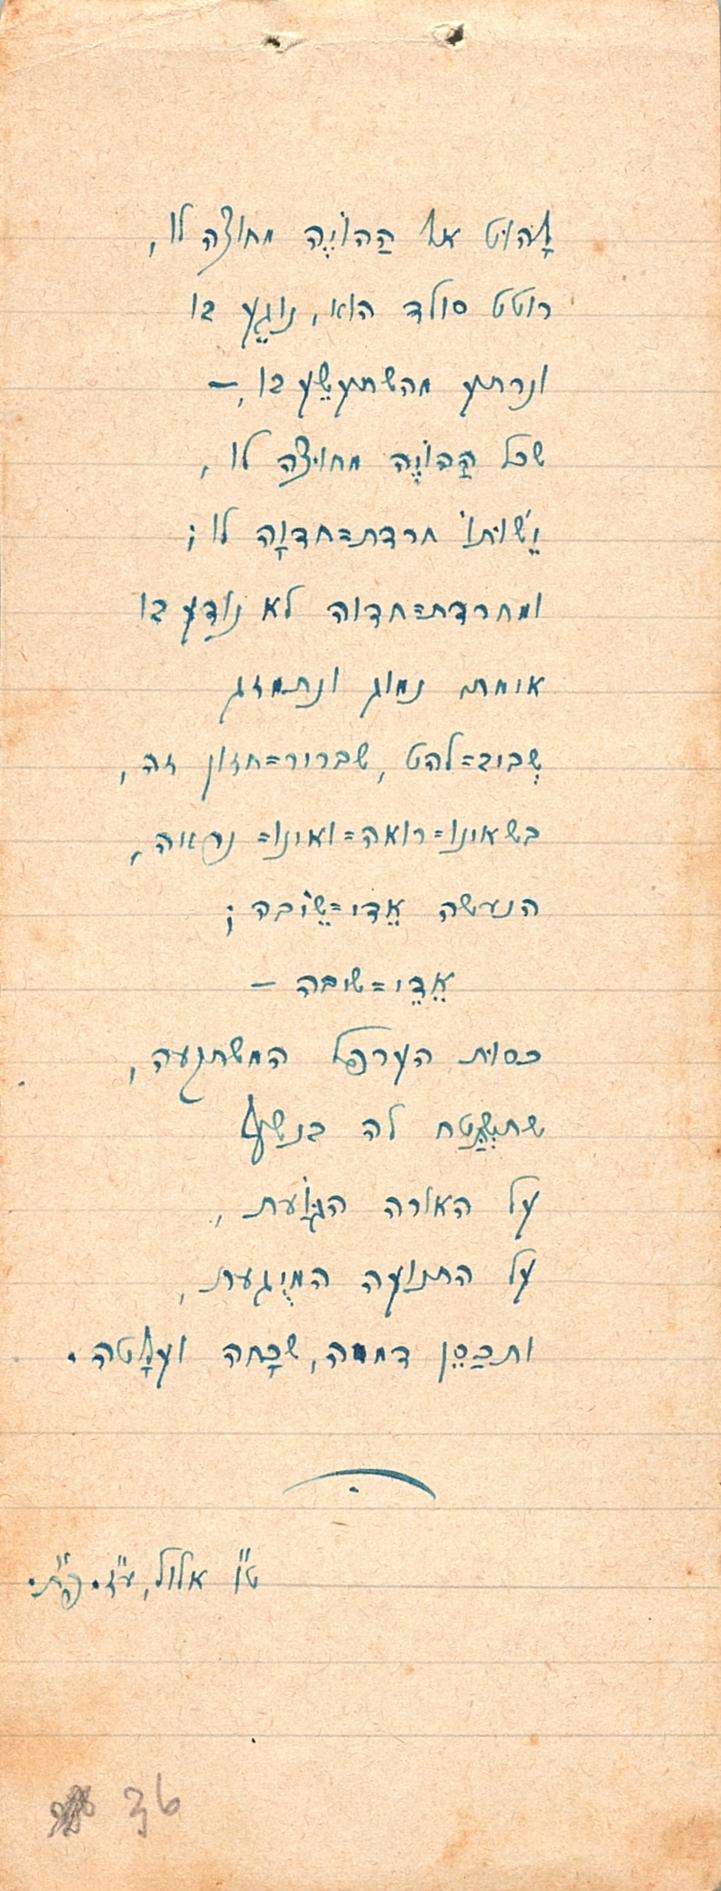 לָהוּט אל הַהוֹיֶה מחוצה לו,
רוטט סולד הוא, נוגֵעַ בו
ונרתע מהשתעשֵׁעַ בו, –
שכל הַהוֹיֶה מחוצה לו,
יֵשׁוּתוֹ חרדת=חדוָה לו;
ומחרדת=חדוה לא נודע בו
אימת נמוג ונתמזג
שְׁבוב=להט, שברור=חזון זה,
בשאינו=רואה=ואינו= נראה,
הנעשה אֵדֵי=שֵׂיבה;
אֵדֵי=שיבה –
כסות הערפל המשתגעה,
לה בנשף
על האורה הגוֹעת,
על התנועה המיֻגעת,
ותכַסֵן דממה, שִׁכְחה ועלָטה.
ט"ו אלול,
36